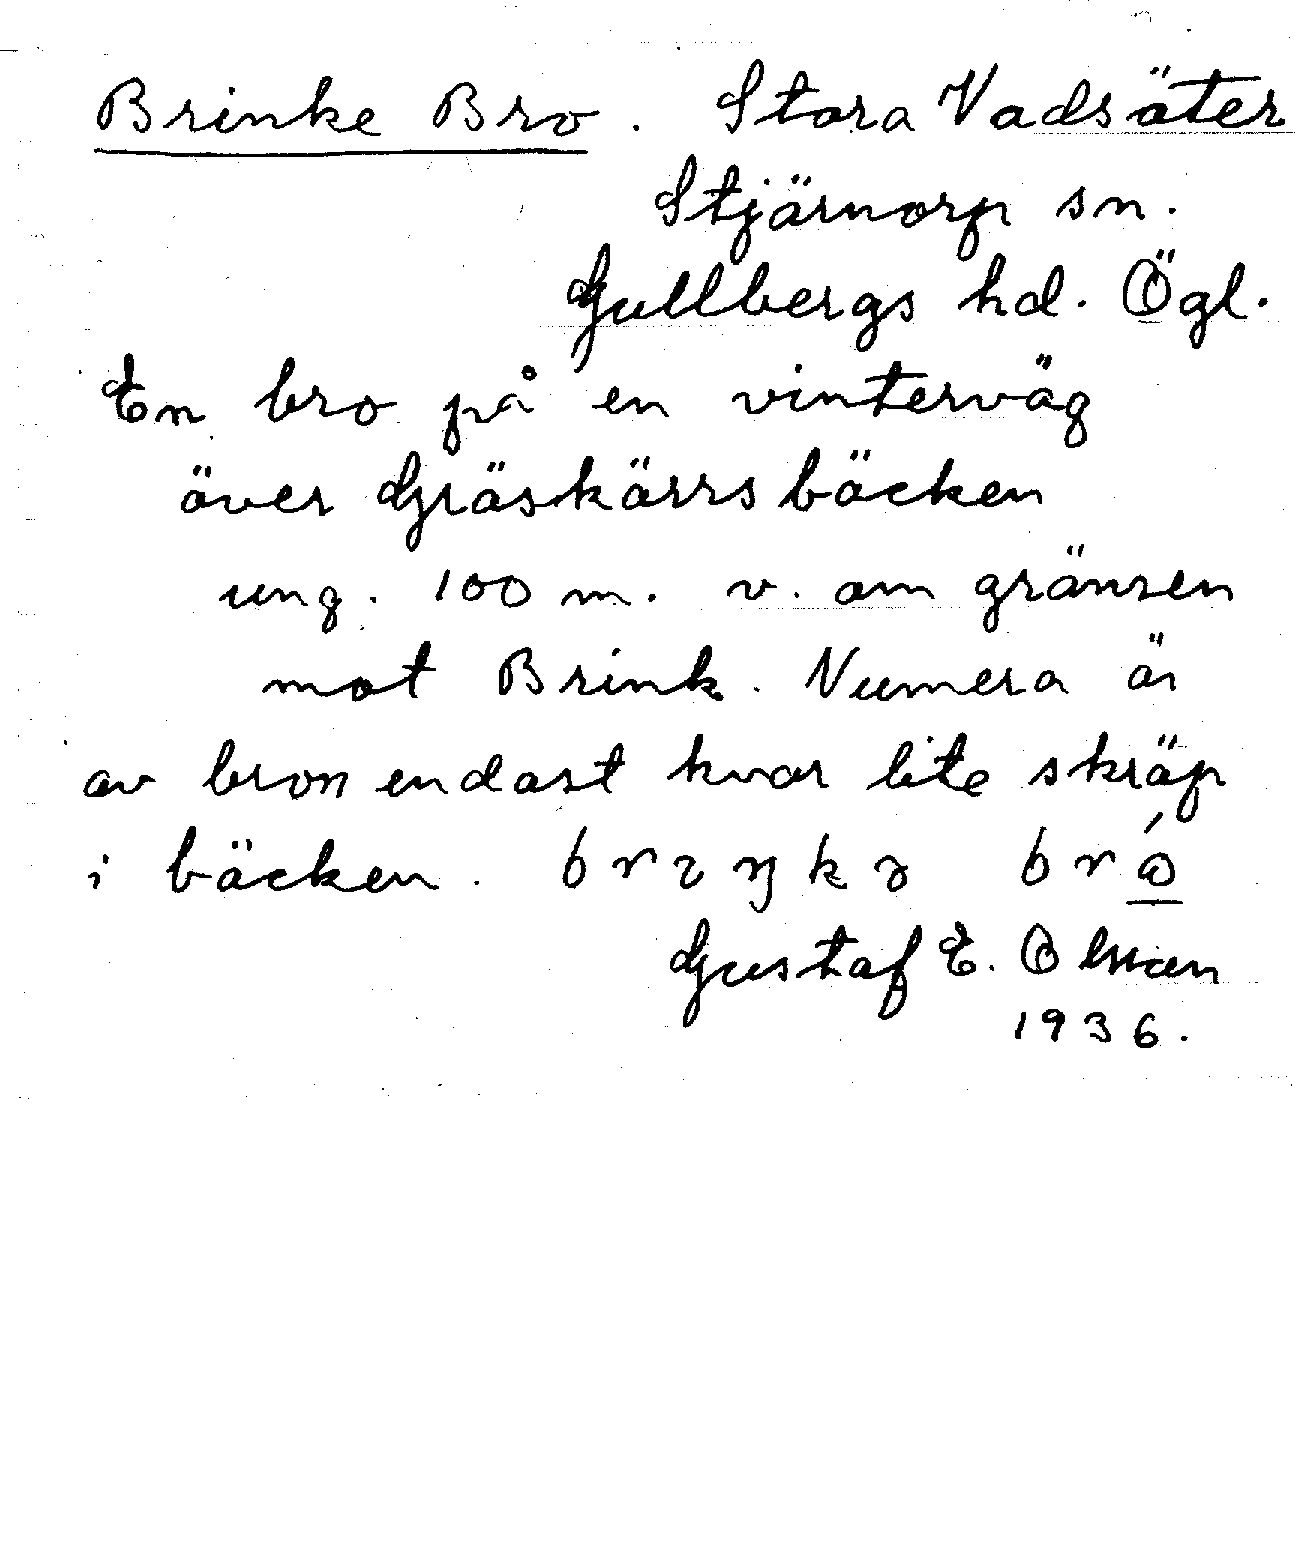 Brinke Bro. Stora Vadsäter
Stjärnorp sn.
Gullbergs hd. Ögl.
En bro på en vinterväg
över Gräskärrsbäcken
ung. 100 m. v. om gränsen
mot Brink. Numera är
av bron endast kvar lite skräp
i bäcken.
Gustaf E. Olsson
1936.